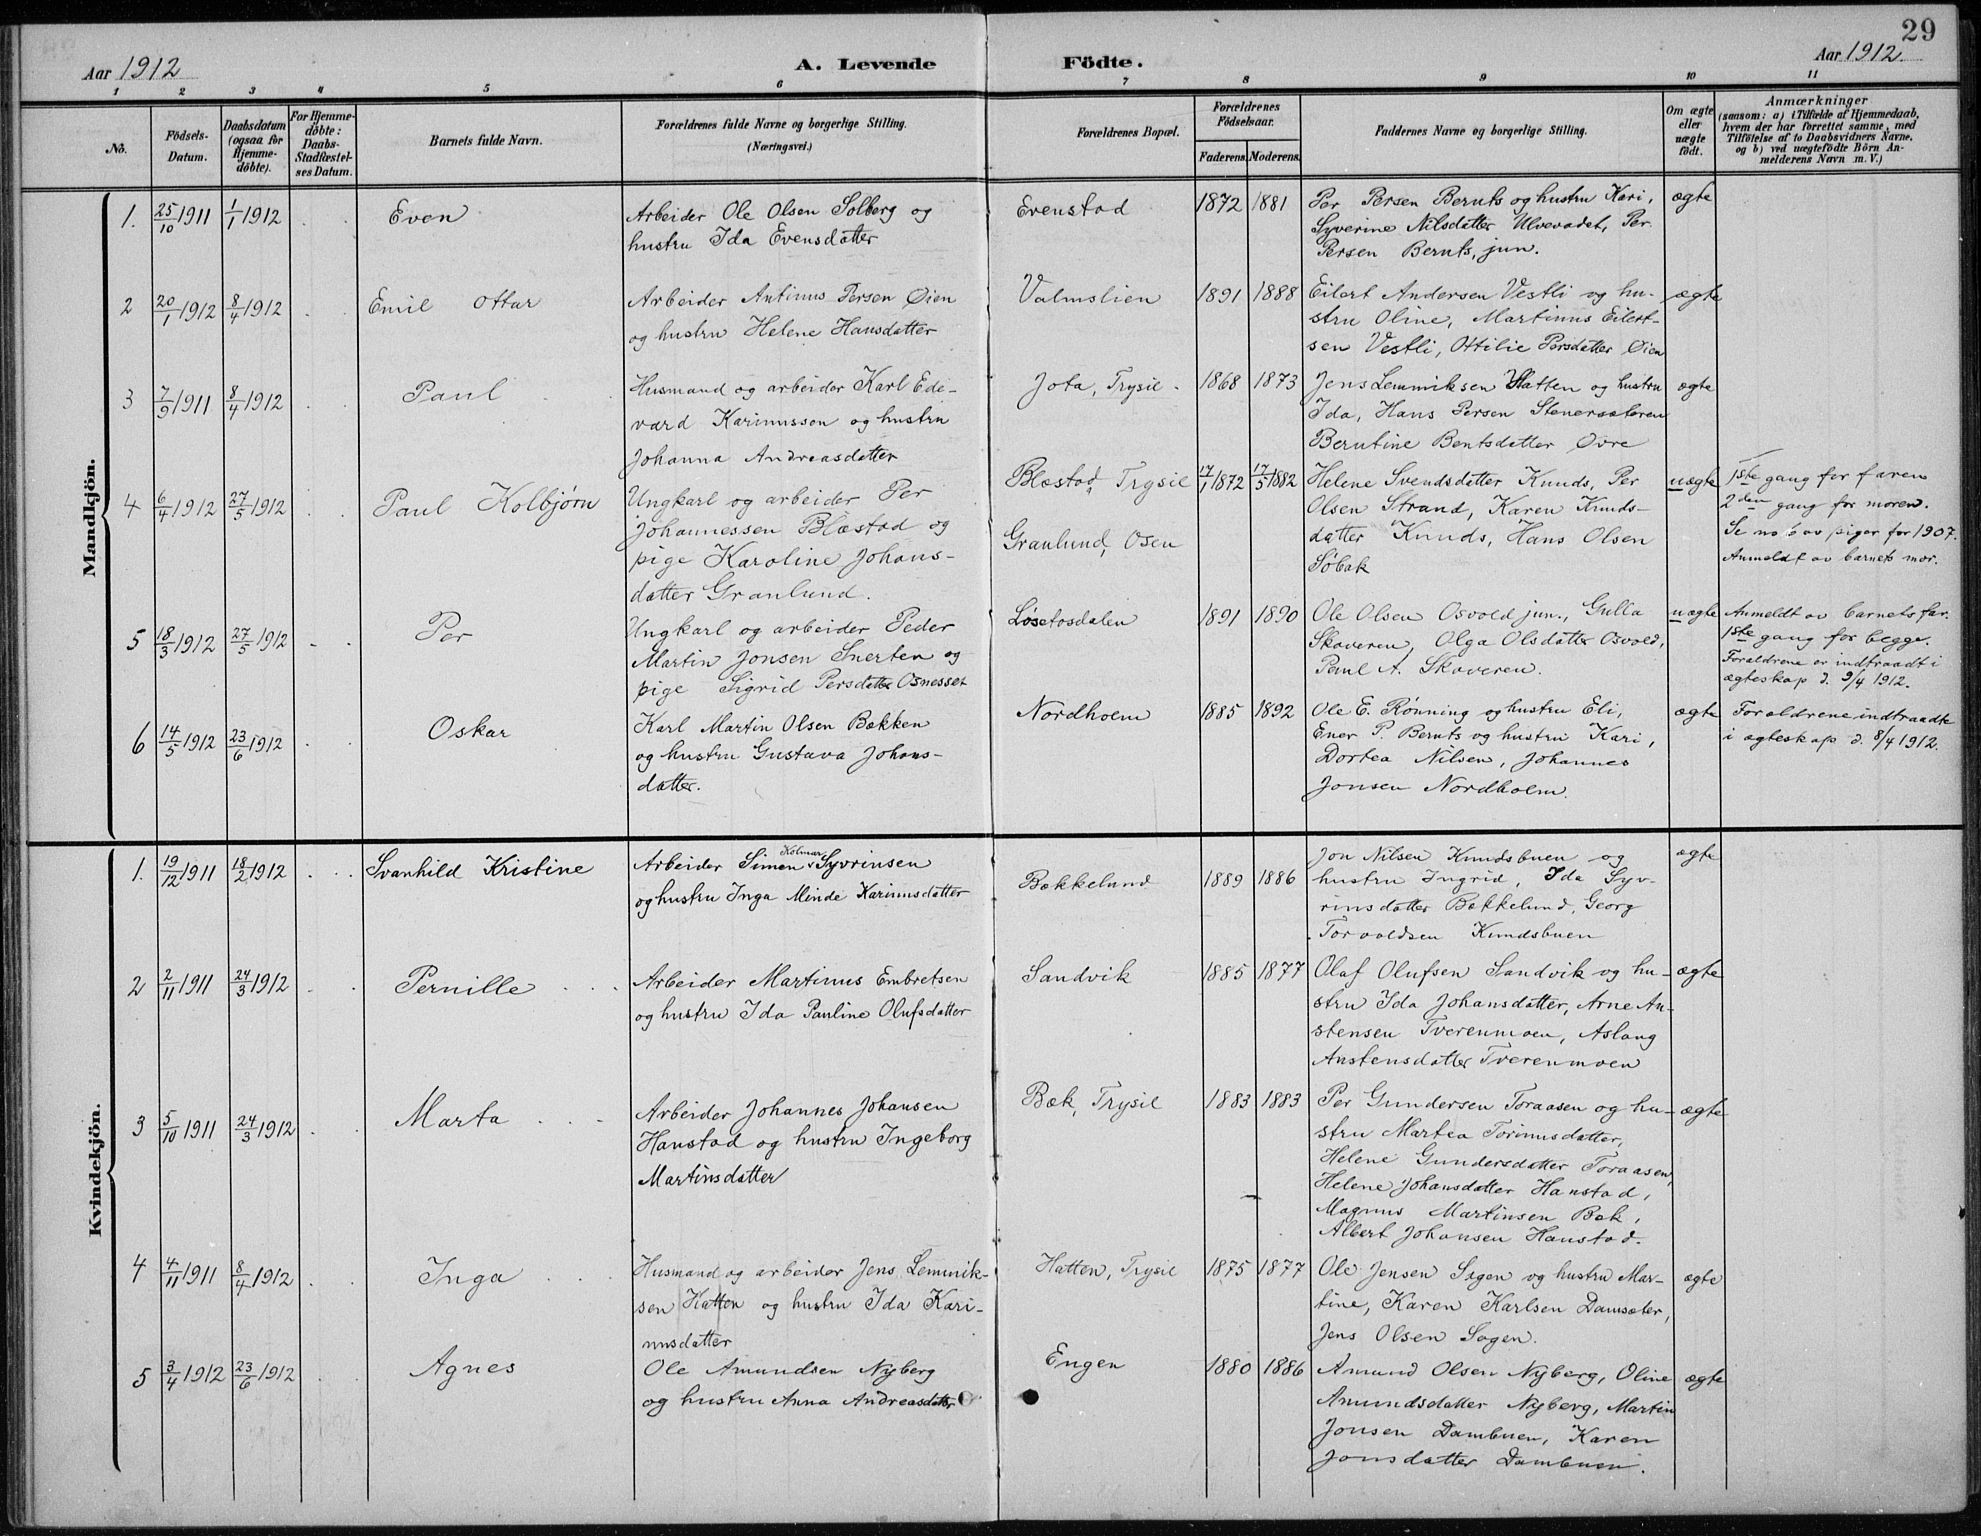 29
Aar 1912
A. Levende Födte.
Aar 1912.
1 2 3 4 5 6 7 8 9 10 11
No.
Födsels-Datum.
Daabsdatum (ogsaa för Hjemme-döbte).
For Hjemme-döbte: Daabs-Stadfæstel-ses Datum.
Barnets fulde Navn.
Forældrenes fulde Navne og borgerlige Stilling.
(Næringsvei.)
Forældrenes Bopæl.
Forældrenes Födselsaar.
Faderens. Moderens.
Faddernes Navne og borgerlige Stilling.
Om ægte eller uægte födt.
Anmærkninger
(saasom: a) i Tilfælde af Hjemmedaab,
hvem der har forrettet samme, med
Tilföielse af to Daabsvidners Navne,
og b) ved uægtefödte Börn An-
melderens Navn m. V.)
Mandkjön.
1. 25/10 1911 1/1 1912 Even
Arbeider Ole Olsen Solberg og
hustru Ida Evensdatter
Evenstad 1872 1881
Per Persen Beruts og hustru Kari,
Syverine Nilsdatter Ulvevadet, Per
Persen Beruts, jun.
ægte
2 20/1 1912 8/4 1912 Emil Ottar
Arbeider Antinus Persen Øien
og hustru Helene Hansdatter
Valmslien 1891 1888
Eilert Andersen Vestli og hu-
stru Oline, Martinus Eilert-
sen Vestli, Ottilie Persdatter Øien
ægte
3 7/9 1911 8/4 1912 Paul
Husmand og arbeider Karl Ede-
vard Karinussen og hustru
Johanna Andreasdatter
Jota, Trysil. 1868 1873
Jens Lemmiksen Hatten og hustru
Ida, Hans Persen Stenersæteren
Berutine Bentsdatter Øvre
ægte
4 6/4 1912 27/5 1912 Paul Kolbjørn
Ungkarl og arbeider Per
Johannessen Blæstad og
pige Karoline Johans-
datter Granlund.
Blæstad, Trysil
Granlund, Osen
17/1 1872 17/5 1882
Helene Svendsdatter Knuds, Per
Olsen Strand, Karen Knuds-
datter Knuds, Hans Olsen
Søbak
uægte
1ste gang for faren
2den gang for moren.
Se no 6 av piger for 1907.
Anmeldt av barnets mor.
5 18/3 1912 27/5 1912 Per
Ungkarl og arbeider Peder
Martin Jonsen Snerten og
pige Sigrid Persdatter Osnesset
Løsetosdalen 1891 1890
Ole Olsen Osvold jun., Gulla
Skoveren, Olga Olsdatter Osvold,
Paul A. Skoveren.
uægte
Anmeldt av barnets far.
1ste gang for begge.
Forældrene er indtraadt i
ægteskap d. 9/4 1912.
6 14/5 1912 23/6 1912 Oskar
Karl Martin Olsen Bakken
og hustru Gustava Johans-
datter.
Nordholm 1885 1892
Ole E. Rønning og hustru Eli,
Ener P. Beruts og hustru Kari,
Dortea Nilsen, Johannes
Jonsen Nordholm.
ægte
Forældrene indtraadte
i ægteskap d. 8/4 1912.
Kvindekjön.
1. 19/12 1911 18/2 1912 Svanhild Kristine
Kolmar
Arbeider Simen Syvrinsen
og hustru Inga Minde Karinusdatter
Bækkelund 1889 1886
Jon Nilsen Knudsbuen og
hustru Ingrid, Ida Syv-
rinsdatter Bækkelund, Georg
Torvaldsen Knudsbuen
ægte
2 2/11 1911 24/3 1912 Pernille
Arbeider Martinus Embretsen
og hustru Ida Pauline Olufsdatter
Sandvik 1885 1877
Olaf Olufsen Sandvik og hu-
stru Ida Johansdatter, Arne An-
stensen Tverenmoen, Aslaug
Anstensdatter Tverenmoen
ægte
3 5/10 1911 24/3 1912 Marta
Arbeider Johannes Johansen
Hanstad og hustru Ingeborg
Martinsdatter
Bæk, Trysil 1883 1883
Per Gundersen Toraasen og hu-
stru Martea Torinusdatter,
Helene Gundersdatter Toraasen,
Helene Johansdatter Hanstad,
Magnus Martinsen Bæk,
Albert Johansen Hanstad.
ægte
4 4/11 1911 8/4 1912 Inga
Husmand og arbeider Jens Lemmik-
sen Hatten og hustru Ida Kari-
nusdatter
Hatten, Trysil 1875 1877
Ole Jensen Sagen og hustru Mar-
tine, Karen Karlsen Damsæter,
Jens Olsen Sagen.
ægte
5 3/4 1912 23/6 1912 Agnes
Ole Amundsen Nyberg
og hustru Anna Andreasdatter
Engen 1880 1886
Amund Olsen Nyberg, Oline
Amundsdatter Nyberg, Martin
Jonsen Dambuen, Karen
Jonsdatter Dambuen.
ægte